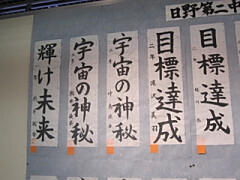 日野第二中
目標達成
目標達成
二年
宇宙の神秘
宇宙の神秘
輝け未来